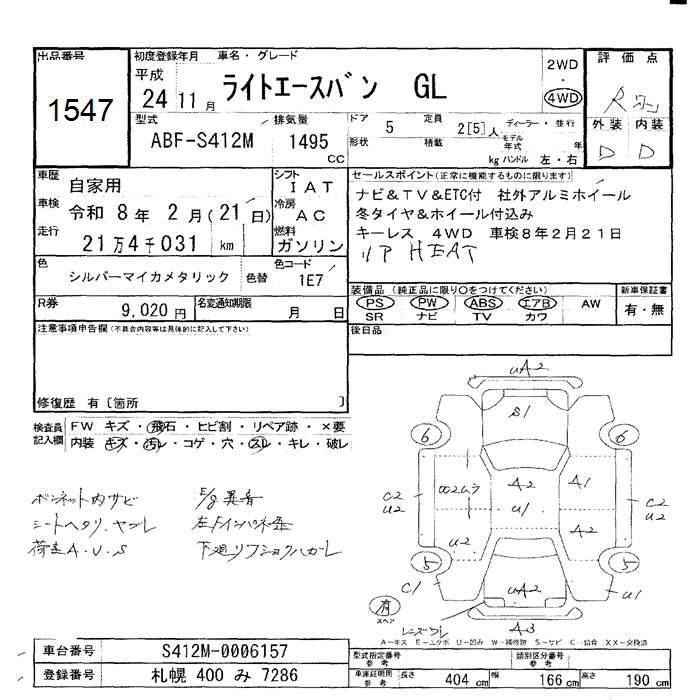 出品番号
1547
初度登録年月 車名・グレード
平成
24 11月
ライトエースバン GL
2WD
・
4WD
評価点
外装 内装
D D
型式
ABF-S412M
排気量
1495
CC
ドア 5 定員 2[5]人
形状 積載 kg
ディーラー・並行
モデル年式 年
ハンドル 左・右
車歴 自家用
車検 令和 8年 2月(21日)
走行 21万4千031 km
シフト IAT
冷房 AC
燃料 ガソリン
セールスポイント(正常に機能するものに限ります)
ナビ&TV&ETC付 社外アルミホイール
冬タイヤ&ホイール付込み
キーレス 4WD 車検8年2月21日
リア HEAT
色 シルバーマイカメタリック 色替
色コード 1E7
装備品 (純正品に限り○をつけてください)
PS PW ABS エアB AW
SR ナビ TV カワ
新車保証書
有・無
R券 9,020円
名変通知期限 月 日
後日品
注意事項申告欄(不具合内容等は具体的に記入して下さい)
修復歴 有[箇所 ]
検査員記入欄
FW キズ・飛石・ヒビ割・リペア跡・×要
内装 キズ・汚レ・コゲ・穴・スレ・キレ・破レ
ボンネット内サビ
シートヘタリ、ヤブレ
荷室A・U・S
E/g異音
下廻リフショクハガレ
uA2
S1
6 6
A2
u1
A1
A2
C2
U2
u2
C2
U2
u2
5 5
C1
u1
uA2
A3
有
スペア
A-キズ E-エクボ U-凹み W-補修跡 S-サビ C-腐食 XX-交換済
車台番号 S412M-0006157
登録番号 札幌 400 み 7286
型式指定番号 参考
類別区分番号 参考
車庫証明用 参考
長さ 404 cm 幅 166 cm 高さ 190 cm